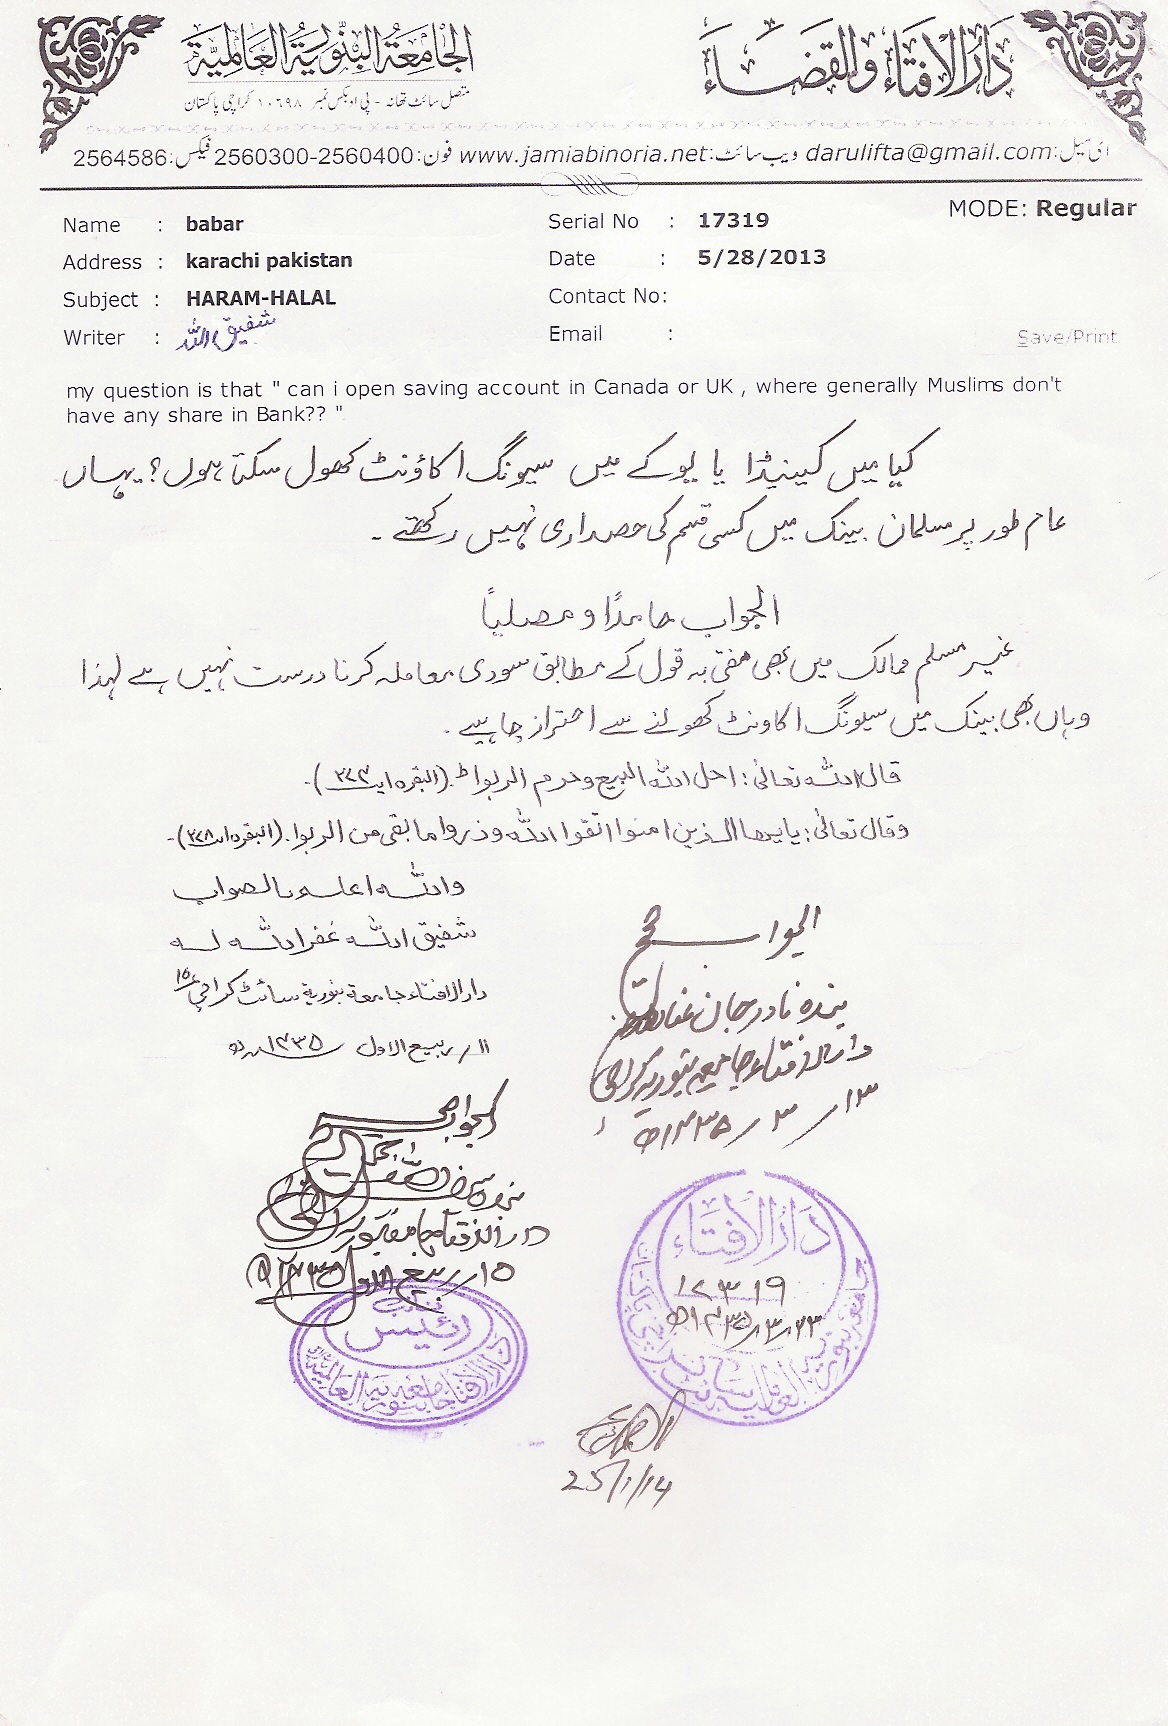 دَارُ الافتَاء وَالقَضَاء
الجَامعَۃُ البِنّورِیَّۃُ العَالمِیَّۃ
متصل سائٹ تھانہ - پی او بکس نمبر ۱۰۶۹۸ کراچی پاکستان
ای میل:darulifta@gmail.com ویب سائٹ:www.jamiabinoria.net فون:2560300-2560400 فیکس:2564586
MODE: Regular
Name : babar
Serial No : 17319
Address : karachi pakistan
Date : 5/28/2013
Subject : HARAM-HALAL
Contact No:
Writer : شفیق اللہ
Email :
Save/Print
my question is that " can i open saving account in Canada or UK , where generally Muslims don't
have any share in Bank?? "
کیا میں کینیڈا یا یوکے میں سیونگ اکاؤنٹ کھول سکتا ہوں؟ یہاں
عام طور پر مسلمان بینک میں کسی قسم کی حصہ داری نہیں رکھتے ۔
الجواب حامدًا و مصلیاً
غیر مسلم ممالک میں بھی مفتی بہ قول کے مطابق سودی معاملہ کرنا درست نہیں ہے لہذا
وہاں بھی بینک میں سیونگ اکاونٹ کھولنے سے احتراز چاہیے ۔
قال اللہ تعالٰی: احل اللہ البیع وحرم الربوا ط (البقرہ ایت)۔
وقال تعالٰی: یایہا الذین امنوا اتقوا اللہ وذروا ما بقی من الربوا. (البقرہ ایت)۔
واللہ اعلم بالصواب
شفیق اللہ غفر اللہ لہ
دارالافتاء جامعہ بنوریۃ سائٹ کراچی
۱۱/ ربیع الاول ۱۴۳۵ھ
الجواب صحیح
بندہ نادر جان
دارالافتاء جامعہ بنوریہ کراچی
۱۳/ ۳ / ۱۴۳۵ھ
الجواب صحیح
بندہ
دارالافتاء جامعہ بنوریہ
۱۵ ربیع الاول ۱۴۳۵ھ
نائب
رئیس
دارالافتاء جامعہ بنوریہ العالمیہ
دَارُ الافتَاء
۱۷۳۱۹
۲۳/۳/۱۴۳۵ھ
25/1/14